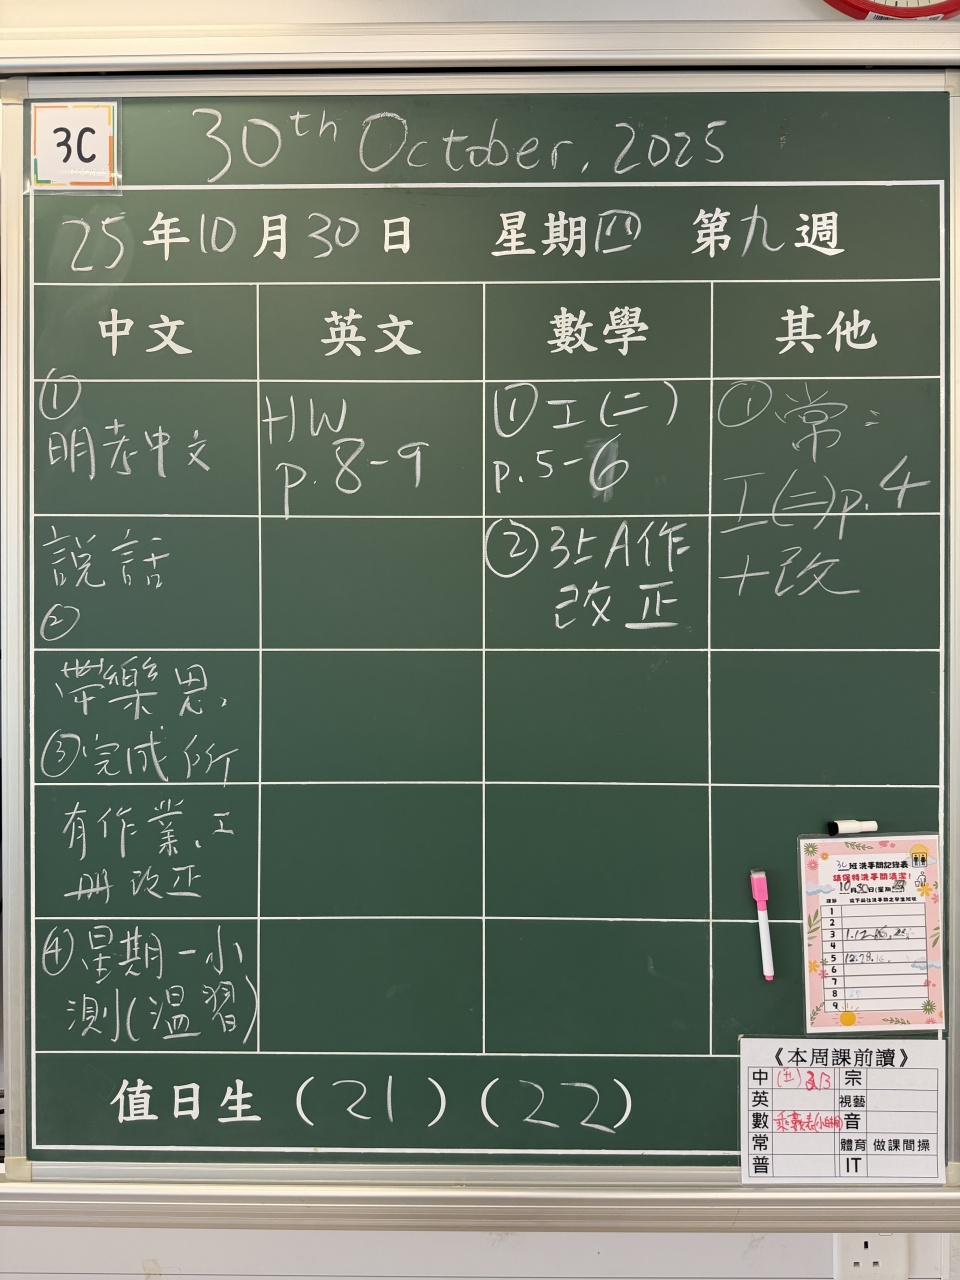 3C
30th October, 2025
25年10月30日 星期四 第九週
中文
英文
數學
其他
①
明考中文
說話
②
帶樂思,
③完成所
有作業、工
冊改正
④星期一小
測(溫習)
HW
p. 8-9
①工(二)
p. 5-6
②3上A作
改正
①常:
工(二)p. 4
+改
值日生 (21) (22)
3C班洗手間記錄表
請保持洗手間清潔!
10月30日(星期四)
1
2
3 1.12
4
5 12.78.
6
7
8
9
《本周課前讀》
中 宗
英 視藝
數 乘數表 音
常 體育 做課間操
普 IT